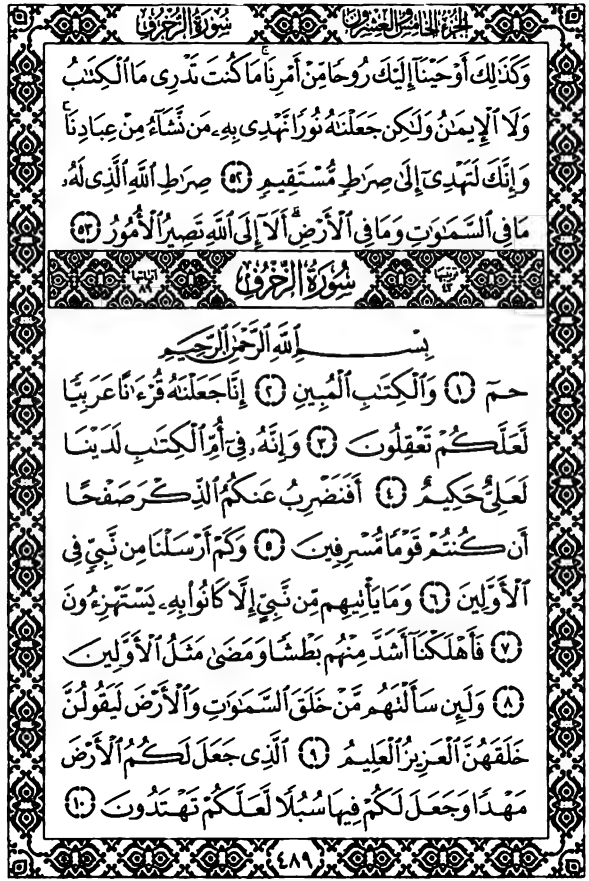 الجزء الخامس والعشرون
سورة الزخرف
وَكَذَٰلِكَ أَوْحَيْنَآ إِلَيْكَ رُوحًا مِّنْ أَمْرِنَا ۚ مَا كُنتَ تَدْرِى مَا ٱلْكِتَٰبُ
وَلَا ٱلْإِيمَٰنُ وَلَٰكِن جَعَلْنَٰهُ نُورًا نَّهْدِى بِهِۦ مَن نَّشَآءُ مِنْ عِبَادِنَا ۚ
وَإِنَّكَ لَتَهْدِىٓ إِلَىٰ صِرَٰطٍ مُّسْتَقِيمٍ ٥٢ صِرَٰطِ ٱللَّهِ ٱلَّذِى لَهُۥ
مَا فِى ٱلسَّمَٰوَٰتِ وَمَا فِى ٱلْأَرْضِ ۗ أَلَآ إِلَى ٱللَّهِ تَصِيرُ ٱلْأُمُورُ ٥٣
ترتيبها ٤٣ سُورَةُ الزُّخْرُفِ آياتها ٨٩
بِسْمِ ٱللَّهِ ٱلرَّحْمَٰنِ ٱلرَّحِيمِ
حمٓ ١ وَٱلْكِتَٰبِ ٱلْمُبِينِ ٢ إِنَّا جَعَلْنَٰهُ قُرْءَٰنًا عَرَبِيًّا
لَّعَلَّكُمْ تَعْقِلُونَ ٣ وَإِنَّهُۥ فِىٓ أُمِّ ٱلْكِتَٰبِ لَدَيْنَا
لَعَلِىٌّ حَكِيمٌ ٤ أَفَنَضْرِبُ عَنكُمُ ٱلذِّكْرَ صَفْحًا
أَن كُنتُمْ قَوْمًا مُّسْرِفِينَ ٥ وَكَمْ أَرْسَلْنَا مِن نَّبِىٍّ فِى
ٱلْأَوَّلِينَ ٦ وَمَا يَأْتِيهِم مِّن نَّبِىٍّ إِلَّا كَانُوا۟ بِهِۦ يَسْتَهْزِءُونَ
٧ فَأَهْلَكْنَآ أَشَدَّ مِنْهُم بَطْشًا وَمَضَىٰ مَثَلُ ٱلْأَوَّلِينَ
٨ وَلَئِن سَأَلْتَهُم مَّنْ خَلَقَ ٱلسَّمَٰوَٰتِ وَٱلْأَرْضَ لَيَقُولُنَّ
خَلَقَهُنَّ ٱلْعَزِيزُ ٱلْعَلِيمُ ٩ ٱلَّذِى جَعَلَ لَكُمُ ٱلْأَرْضَ
مَهْدًا وَجَعَلَ لَكُمْ فِيهَا سُبُلًا لَّعَلَّكُمْ تَهْتَدُونَ ١٠
٤٨٩